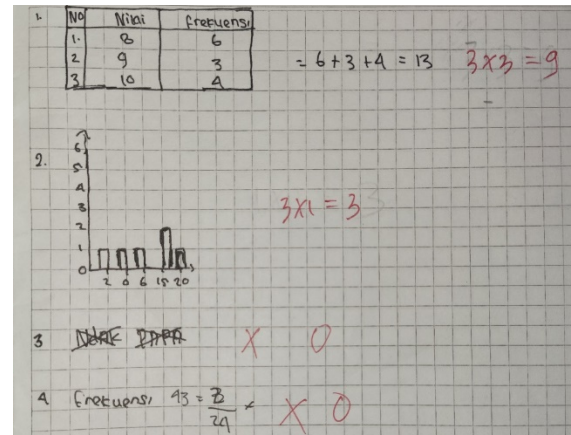 1. No Nilai frekuensi
1. 8 6
2 9 3 = 6 + 3 + 4 = 13 3x3 = 9
3 10 4
2.
6
5
4
3
2
1
0
2 0 6 15 20
3x1 = 3
3 X 0
4 frekuensi 43 = 3/24 X 0